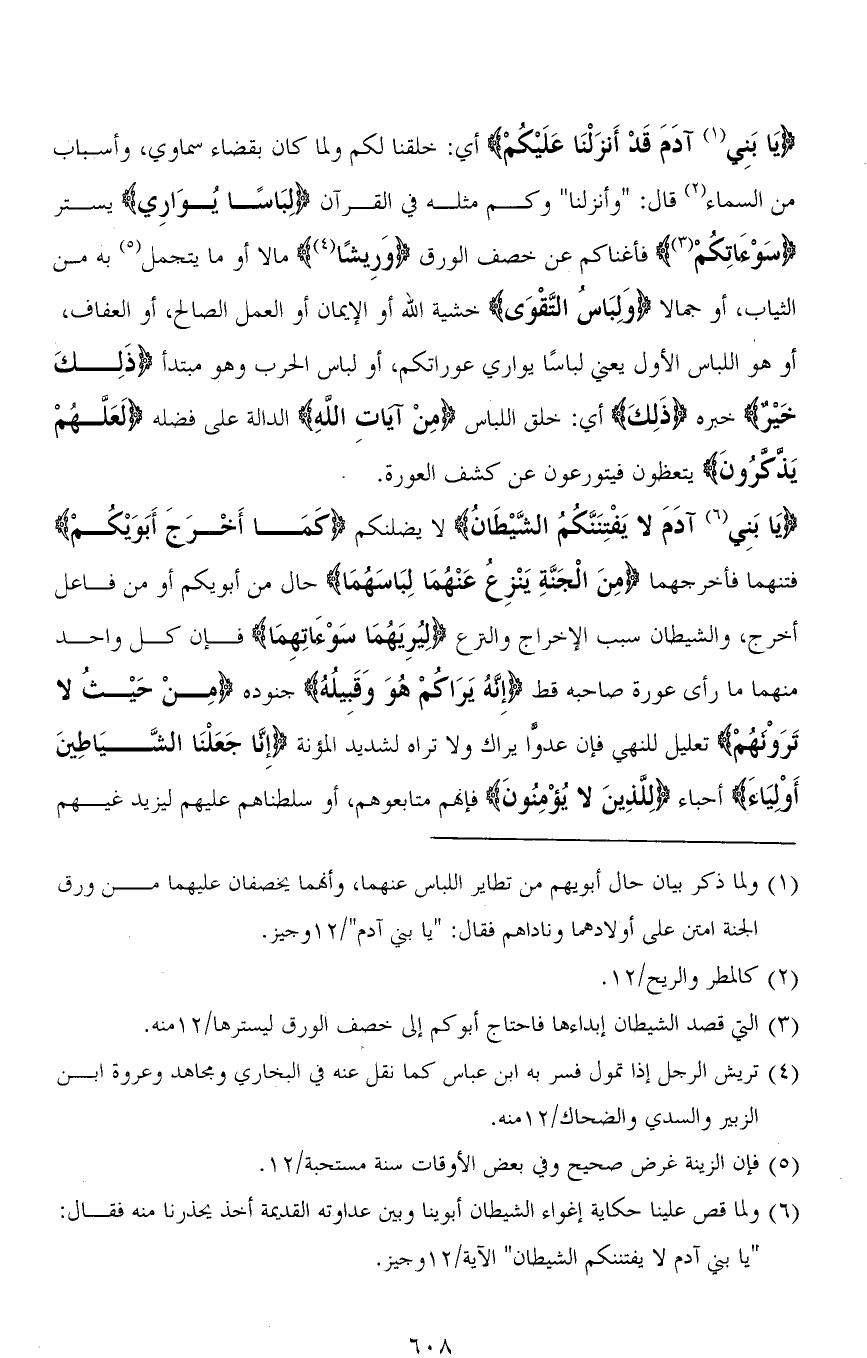 ﴿يَا بَنِي(١) آدَمَ قَدْ أَنزَلْنَا عَلَيْكُمْ﴾ أي: خلقنا لكم ولما كان بقضاء سماوي، وأسباب
من السماء(٢) قال: "وأنزلنا" وكم مثله في القرآن ﴿لِبَاسًا يُوَارِي﴾ يستر
﴿سَوْءَاتِكُمْ(٣)﴾ فأغناكم عن خصف الورق ﴿وَرِيشًا(٤)﴾ مالا أو ما يتجمل(٥) به من
الثياب، أو جمالا ﴿وَلِبَاسُ التَّقْوَى﴾ خشية الله أو الإيمان أو العمل الصالح، أو العفاف،
أو هو اللباس الأول يعني لباسًا يواري عوراتكم، أو لباس الحرب وهو مبتدأ ﴿ذَلِكَ
خَيْرٌ﴾ خبره ﴿ذَلِكَ﴾ أي: خلق اللباس ﴿مِنْ آيَاتِ اللَّهِ﴾ الدالة على فضله ﴿لَعَلَّهُمْ
يَذَّكَّرُونَ﴾ يتعظون فيتورعون عن كشف العورة.
﴿يَا بَنِي(٦) آدَمَ لا يَفْتِنَنَّكُمُ الشَّيْطَانُ﴾ لا يضلنكم ﴿كَمَا أَخْرَجَ أَبَوَيْكُمْ﴾
فتنهما فأخرجهما ﴿مِنَ الْجَنَّةِ يَنْزِعُ عَنْهُمَا لِبَاسَهُمَا﴾ حال من أبويكم أو من فاعل
أخرج، والشيطان سبب الإخراج والنزع ﴿لِيُرِيَهُمَا سَوْءَاتِهِمَا﴾ فإن كل واحد
منهما ما رأى عورة صاحبه قط ﴿إِنَّهُ يَرَاكُمْ هُوَ وَقَبِيلُهُ﴾ جنوده ﴿مِنْ حَيْثُ لا
تَرَوْنَهُمْ﴾ تعليل للنهي فإن عدوًّا يراك ولا تراه لشديد المؤنة ﴿إِنَّا جَعَلْنَا الشَّيَاطِينَ
أَوْلِيَاءَ﴾ أحباء ﴿لِلَّذِينَ لا يُؤْمِنُونَ﴾ فإنهم متابعوهم، أو سلطناهم عليهم ليزيد غيهم
(١) ولما ذكر بيان حال أبويهم من تطاير اللباس عنهما، وأنهما يخصفان عليهما من ورق
الجنة امتن على أولادهما وناداهم فقال: "يا بني آدم"/١٢وجيز.
(٢) كالمطر والريح/١٢.
(٣) التي قصد الشيطان إبداءها فاحتاج أبوكم إلى خصف الورق ليسترها/١٢منه.
(٤) تريش الرجل إذا تمول فسر به ابن عباس كما نقل عنه في البخاري ومجاهد وعروة ابن
الزبير والسدي والضحاك/١٢منه.
(٥) فإن الزينة غرض صحيح وفي بعض الأوقات سنة مستحبة/١٢.
(٦) ولما قص علينا حكاية إغواء الشيطان أبوينا وبين عداوته القديمة أخذ يحذرنا منه فقال:
"يا بني آدم لا يفتننكم الشيطان" الآية/١٢وجيز.
٦٠٨